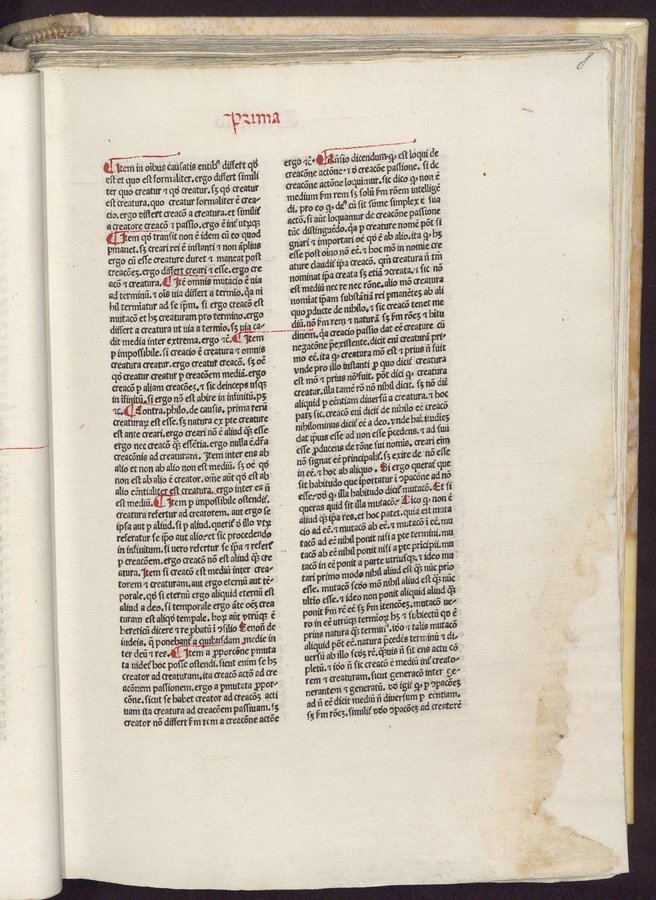 8
Prima
Item in oībus causatis entibꝰ differt qđ
est et quo est formaliter. ergo differt simili
ter quo creatur ⁊ qđ creatur. sꝫ qđ creatur
est creatura. quo creatur formaliter ē crea⸗
cio. ergo differt creacō a creatura. et similiť
a creatore creacō ⁊ passio. ergo ē inť utrꝫqꝫ
Item qđ transit non ē idem cū eo quod
pmanet. sꝫ creari rei ē instanti ⁊ non āplius
ergo cū esse creature duret ⁊ maneat post
creacōeꝫ. ergo differt creari ⁊ esse. ergo cre
acō ⁊ creatura. Itē omnis mutacio ē uia
ad terminū. ⁊ oīs uia differt a termio. qa ni
hil termiatur ad se ipm̄. si ergo creacō est
mutacō et hꝫ creaturam pro termino. ergo
differt a creatura ut uia a termio. sꝫ uia ca⸗
dit media inter extrema. ergo ⁊c̄. Item
p impossibile. si creacio ē creatura ⁊ omnis
creatura creatur. ergo creatur creacō. sꝫ oē
qđ creatur creatur p creacōem mediā. ergo
creacō p aliam creacōeꝫ. ⁊ sic deinceps usqꝫ
in īfinitū. si ergo nō est abire in infinitū. pꝫ
⁊c. Contra. philo. de causis. prima rerū
creaturaꝝ est esse. sꝫ natura ex pte creature
est ante creari. ergo creari nō ē aliud qꝫ esse
ergo nec creacō qꝫ essētia. ergo nulla ē dr̄a
creacōnis ad creaturam. Item inter ens ab
alio et non ab alio non est mediū. sꝫ oē qđ
non est ab alio ē creator. om̄e aūt qđ est ab
alio eēntialiter est creatura. ergo inter ea n̄
est mediū. Item p impossibile ostendiť.
creatura refertur ad creatorem. aut ergo se
ipsa aut p aliud. si p aliud. queriť ō illo utꝝ
referatur se ip̄o aut alio. et sic procedendo
in infinitum. si uero refertur se ip̄a ⁊ referť
p creacōem. ergo creacō nō est aliud qꝫ cre
atura. Item si creacō est mediū inter crea⸗
torem ⁊ creaturam. aut ergo eternū aut tē⸗
porale. qđ si eternū ergo aliquid eternū est
aliud a deo. si temporale ergo āte oēꝫ crea
turam est aliqđ tempale. hoꝝ aūt utrūqꝫ ē
hereticū dicere ⁊ rep̄batū ī ↄsilio Senon̄ de
iudeis. q̄ ponebant a quibusdam medie in
ter deū ⁊ res. Item a ꝓporcōne pmuta
ta uideť hoc posse ostendi. sicut enim se hꝫ
creator ad creaturam. ita creacō actō ad cre
acōnem passionem. ergo a pmutata ꝓpor⸗
cōne. sicut se habet creator ad creacōꝫ acti
uam ita creatura ad creacōem passiuam. sꝫ
creator nō differt ẜm rem a creacōne actōe
ergo ⁊c̄. Rn̄sio dicendum. ꝙ est loqui de
creacōne actōne. ⁊ đ creacōne passione. si de
creacōne actōne loquimur. sic dico ꝙ non ē
medium ẜm rem sꝫ solū ẜm rōem intellige
di. pro eo ꝙ deꝰ cū sit sūme simplex ē sua
actō. si aūt loquamur de creacōne passione
tūc distinguēdo. qa p creature nomē pōt si
gnari ⁊ importari oē qđ ē ab alio. ita ꝙ hꝫ
esse post oīno nō eē. ⁊ hoc mō in nomīe cre
ature claudiť ip̄a creacō. qm̄ creatura n̄ tm̄
nominat ip̄a creata sꝫ etiā ↄ̄creata. ⁊ sic nō
est mediū nec re nec rōne. alio mō creatura
nomīat ip̄am substātiā rei pmanētꝫ ab ali
quo ꝓducte de nihilo. ⁊ sic creacō tenet me
diū. nō ẜm rem ⁊ naturā sꝫ ẜm rōeꝫ ⁊ hītu
dinem. qa creacio passio dat eē creature cū
negacōne p̄existente. dicit eni creaturā pri⸗
mo eē. ita ꝙ creatura mō est ⁊ prius n̄ fuit
vnde pro illo instanti ꝑ quo dicuť creatura
est mō ⁊ prius nō fuit. pōt dici ꝙ creatura
creatur. illa tamē rō nō nihil dicit. sꝫ nō dic̄
aliquid p eēntiam diuersū a creatura. ⁊ hoc
patꝫ sic. creacō eni dicit de nihilo eē creacō
nihilominus diciť eē a deo. vnde habitudieꝫ
dat ip̄ius esse ad non esse p̄cedens. ⁊ ad sui
esse ꝓducens de rōne sui nomis. creari eim
nō signat eē principaliť. sꝫ exire de nō esse
in eē. ⁊ hoc ab aliquo. Si ergo querať que
sit habitudo que īportatur ī ↄpacōne ad nō
esse. đđ ꝙ illa habitudo diciť mutacō. Et si
queras quid sit illa mutacō. Dico ꝙ non ē
aliud qꝫ ip̄a res. et hoc patet. quia eīt muta
cio ad eē. ⁊ mutacō ab eē. ⁊ mutacō ī eē. mu
tacō ad eē nihil ponit nisi a pte termini. mu
tacō ab eē nihil ponit nisi a pte pricipii. mu
tacō in eē ponit a parte utriusqꝫ. ⁊ ideo mu
tari primo modo nihil aliud est qꝫ nūc prio
esse. mutacō scđo mō nihil aliud est qꝫ nūc
ultīo esse. ⁊ ideo non ponit aliquid aliud qꝫ
ponit ẜm rē eē sꝫ ẜm itencōeꝫ. mutacō ue⸗
ro in eē utrūqꝫ termioꝝ hꝫ ⁊ subiectū qđ ē
prius natura qꝫ terminꝰ. iđo ⁊ talis mutacō
aliquid pōit eē. natura p̄cedēs terminū ⁊ di⸗
uersū ab illo scđꝫ rē. quis n̄ sit ens actu cō
pletū. ⁊ iđo n̄ sit creacō ē mediū inť creato⸗
rem ⁊ creaturam. sicut generacō inter ge⸗
nerantem ⁊ generatū. đđ igiť ꝙ p ↄpacōeꝫ
ad n̄ eē dicit mediū n̄ diuersum p eēntiam.
sꝫ ẜm rōeꝫ. similiť đđo ↄpacōeꝫ ad creatorē